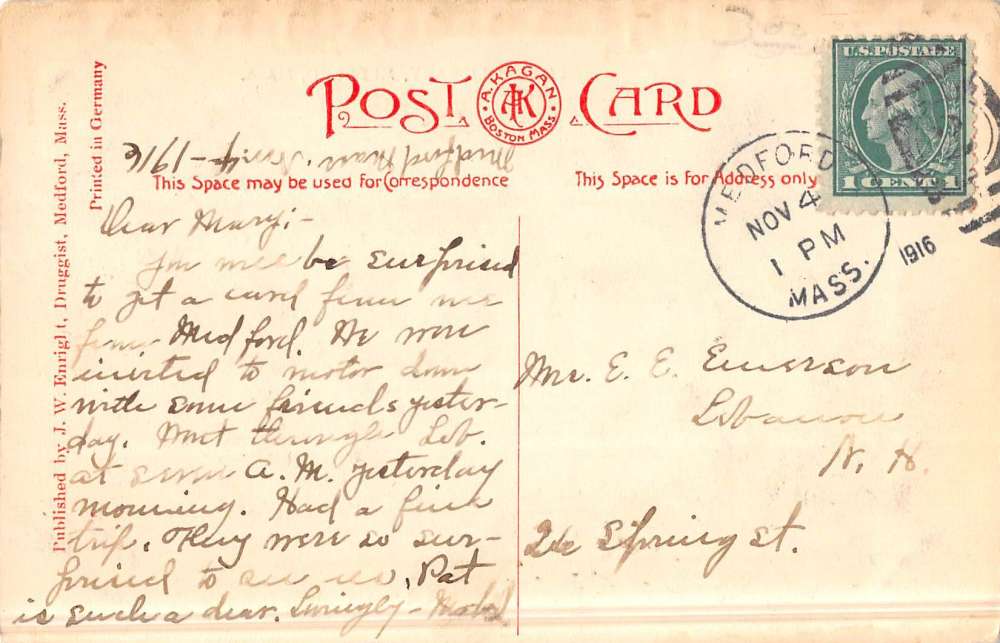 POST CARD
A. KAGAN
AK
BOSTON MASS.
U.S. POSTAGE
1 CENT 1
MEDFORD
NOV 4
1 PM
MASS.
1916
This Space may be used for Correspondence
This Space is For Address only
Printed in Germany
Published by J. W. Enright, Druggist, Medford, Mass.
Medford Mass. Nov. 4-1916
Dear Mary:-
You will be surprised
to get a card from me
from Medford. We were
invited to motor down
with some friends yester-
day. Went through Leb.
at seven A.M. yesterday
morning. Had a fine
trip. They were so sur-
prised to see us. Pat
is such a dear. Lovingly - Mabel
Mrs. E. E. Emerson
Lebanon
N. H.
Spring St.